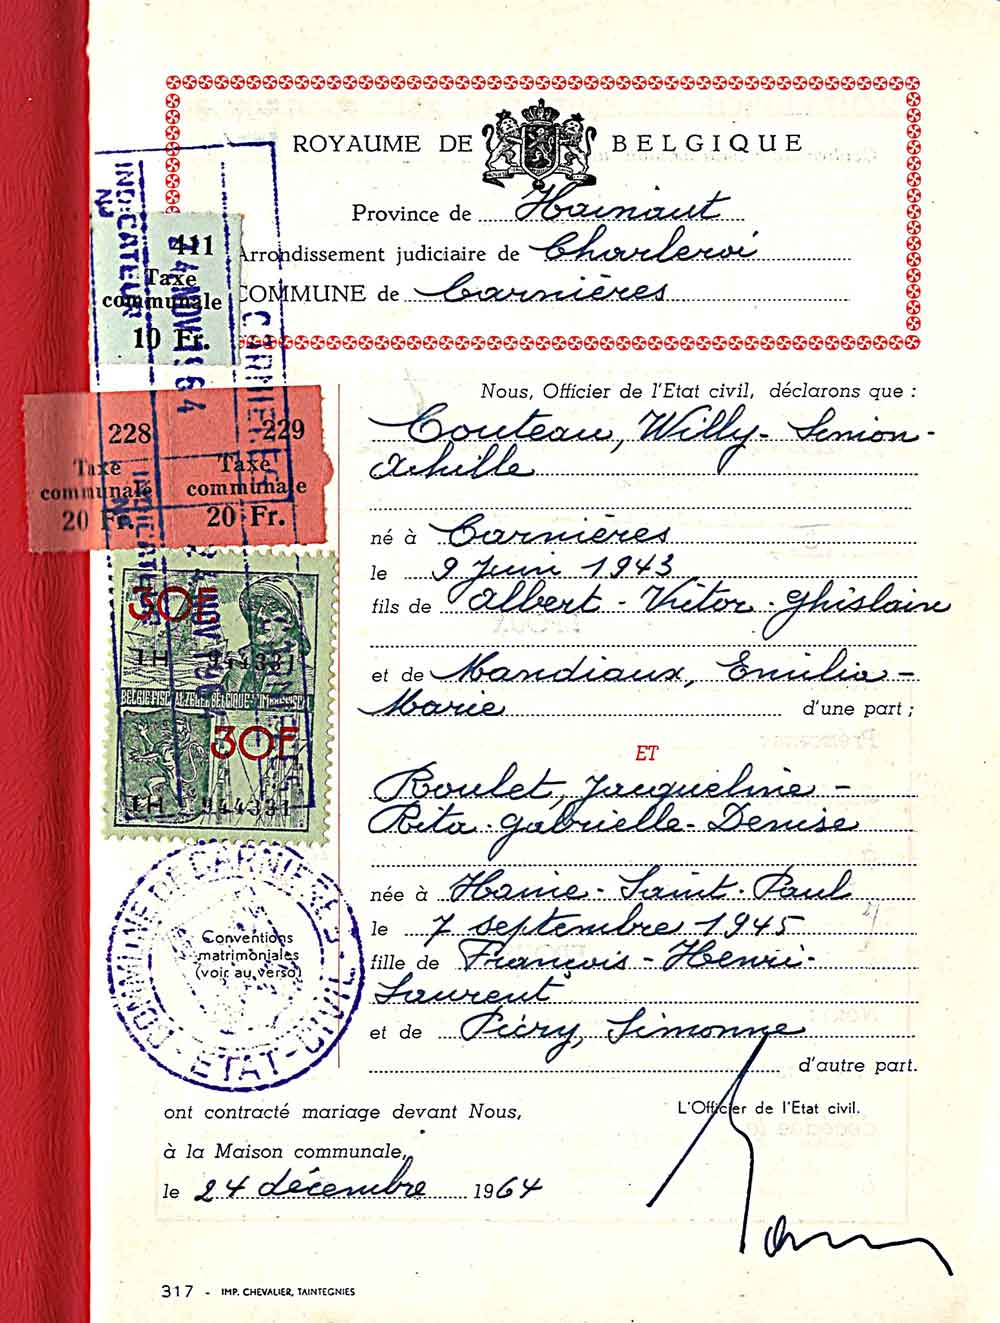 ROYAUME DE BELGIQUE
Province de Hainaut
Arrondissement judiciaire de Charleroi
COMMUNE de Carnières
411
Taxe
communale
10 Fr.
INDICATEUR
No
24 NOV. 1964
CARNIERES
228
Taxe
communale
20 Fr.
229
Taxe
communale
20 Fr.
30F
1H 944331
30F
1H 944331
Nous, Officier de l'Etat civil, déclarons que :
Couteau, Willy - Simon -
Achille
né à Carnières
le 9 Juin 1943
fils de Albert - Victor - Ghislain
et de Mandiaux, Emilia -
Marie d'une part ;
ET
Roulet, Jacqueline -
Rita - Gabrielle - Denise
née à Haine - Saint - Paul
le 7 septembre 1945
fille de François - Henri -
Laurent
et de Piéry, Simonne
d'autre part.
COMMUNE DE CARNIERES
ETAT-CIVIL
Conventions
matrimoniales
(voir au verso)
ont contracté mariage devant Nous,
à la Maison communale,
le 24 décembre 1964
L'Officier de l'Etat civil.
317 - IMP. CHEVALIER, TAINTEGNIES